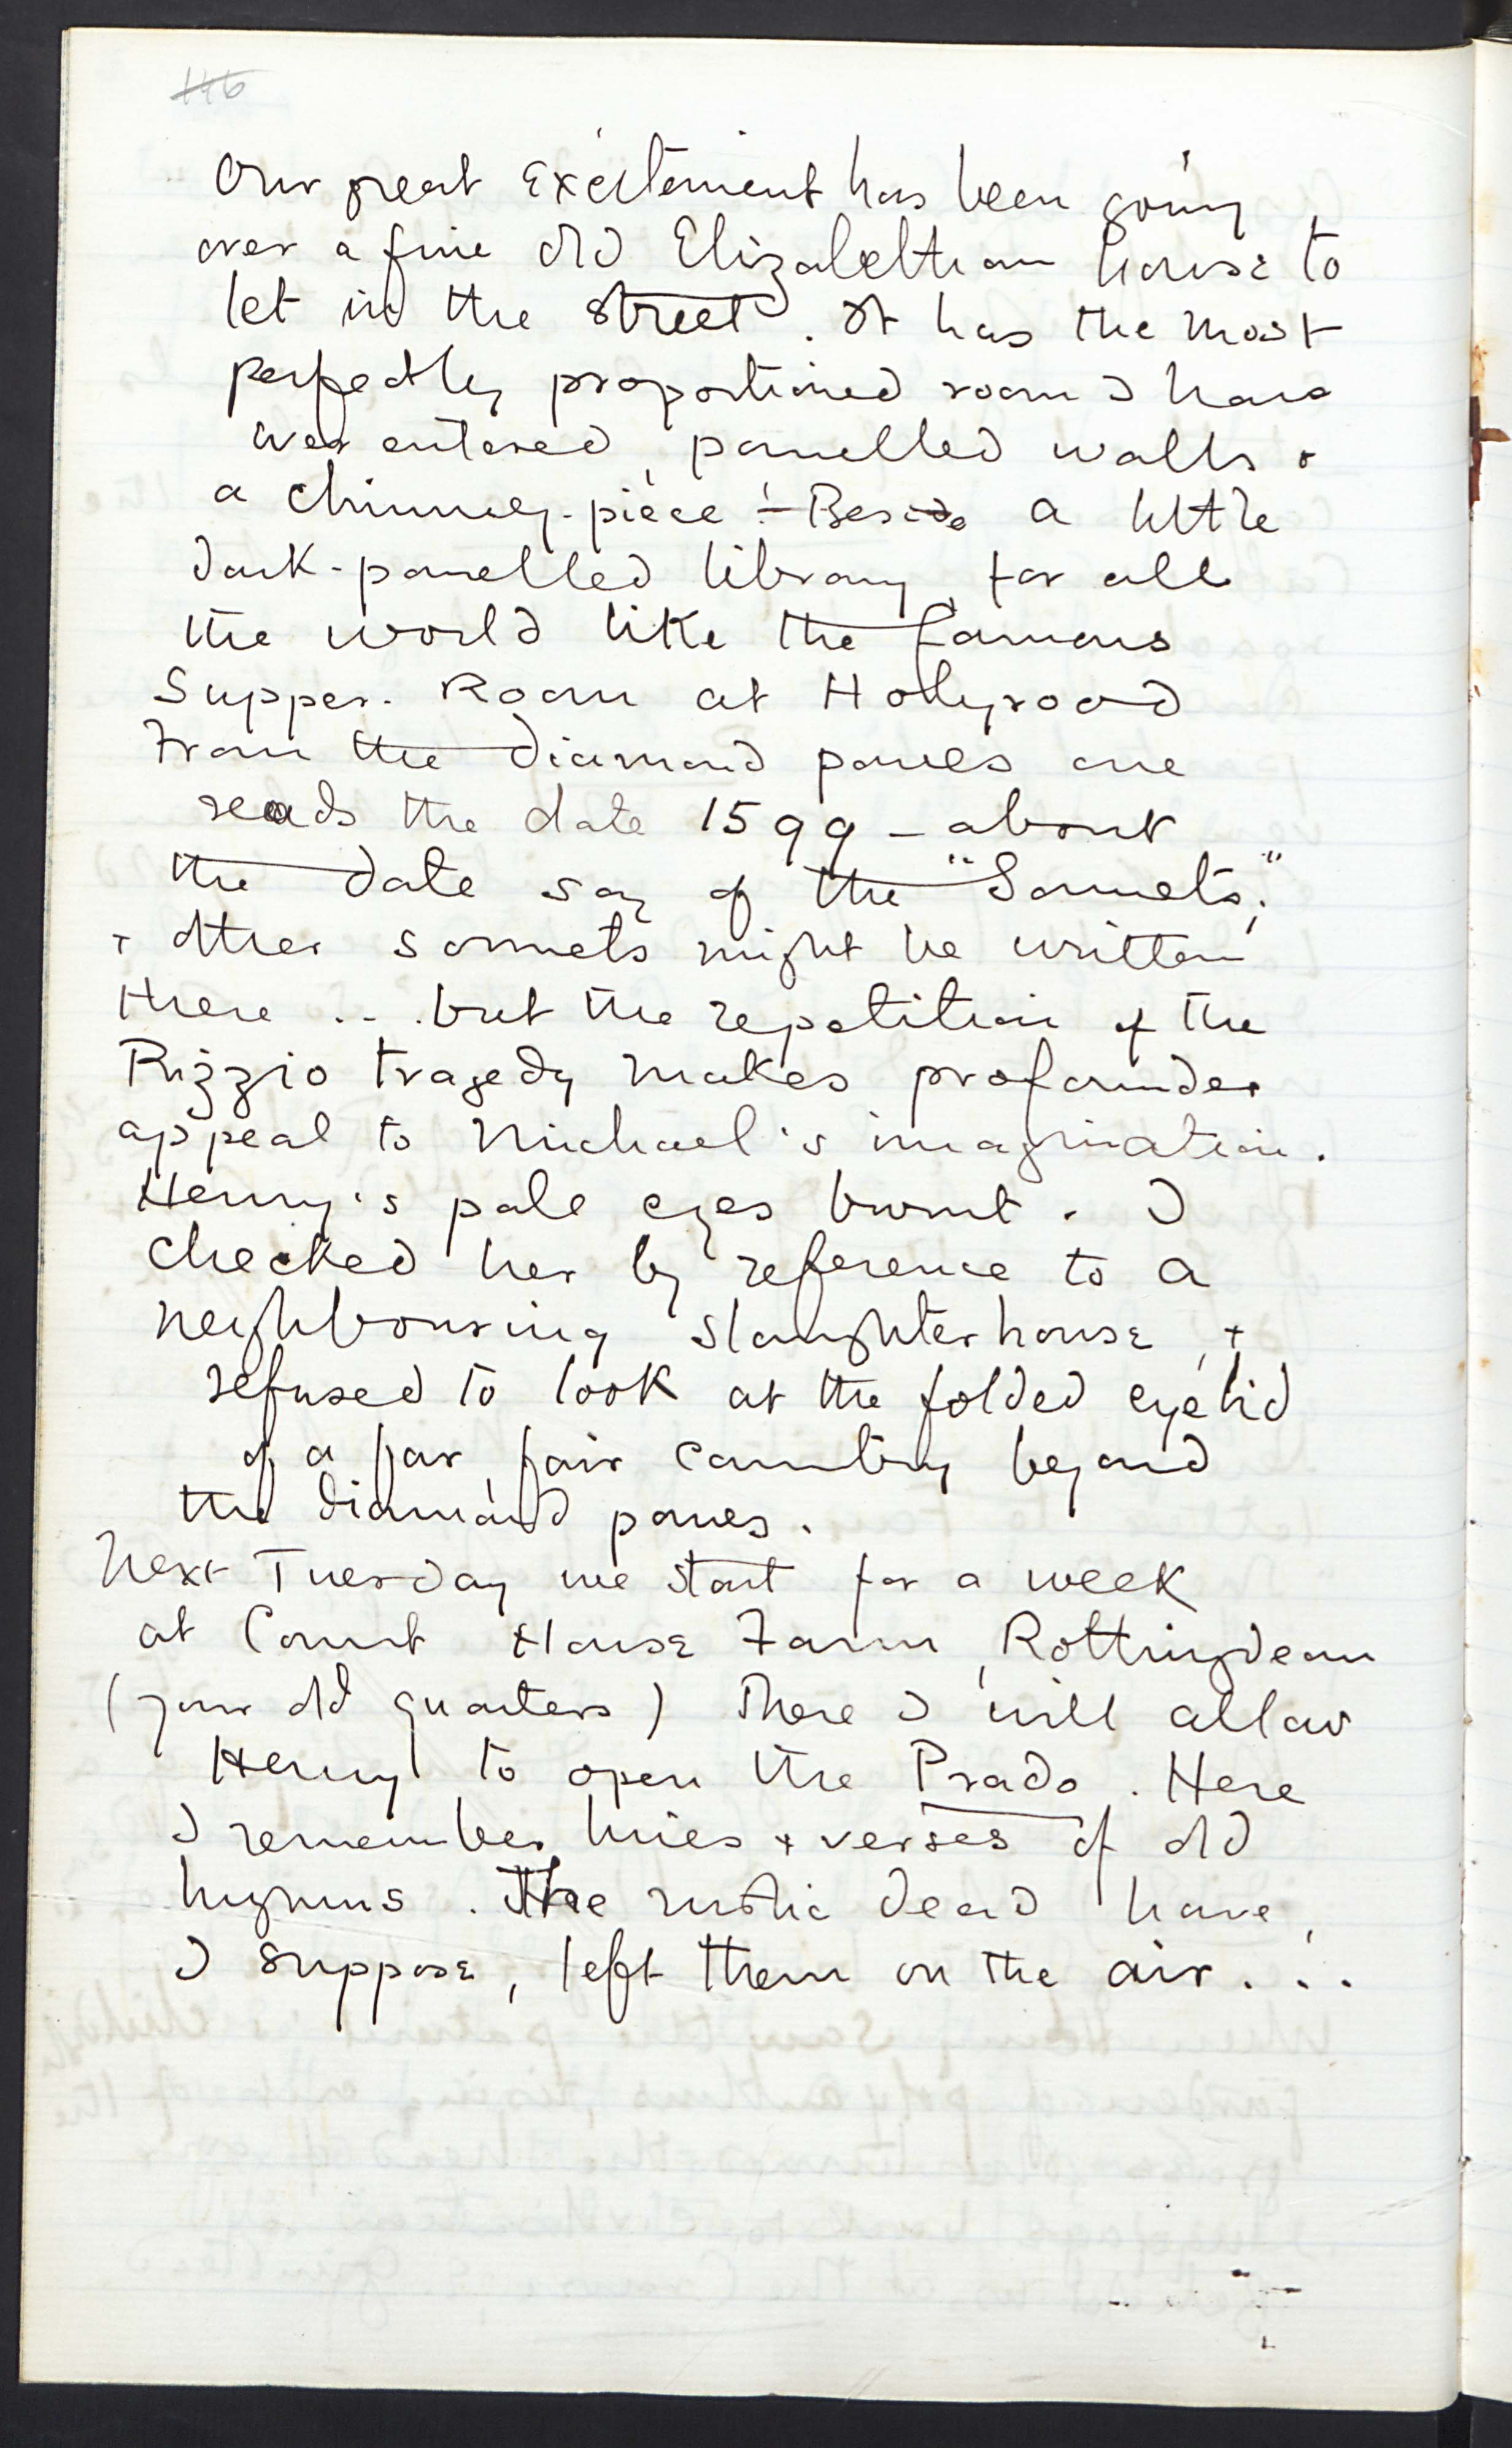 146
Our great excitement has been going
over a fine old Elizabethan house to
let in the street. It has the most
perfectly proportioned room I have
ever entered, panelled walls &
a chimney-piece! - Beside a little
dark-panelled library, for all
the world like the famous
Supper-Room at Holyrood
From the diamond panes one
reads the date 1599 - about
the date say of the "Sonnets,"
& other sonnets might be written
there ... but the repetition of the
Rizzio tragedy makes profounder
appeal to Michael's imagination.
Henry's pale eyes burnt. I
checked her by reference to a
neighbouring slaughterhouse, &
refused to look at the folded eyelid
of a far, fair country beyond
the diamond panes.
Next Tuesday we start for a week
at Court House Farm, Rottingdean
(your old quarters) There I will allow
Henry to open the Prado. Here
I remember lines & verses of old
hymns. The rustic dead have,
I suppose, left them on the air...